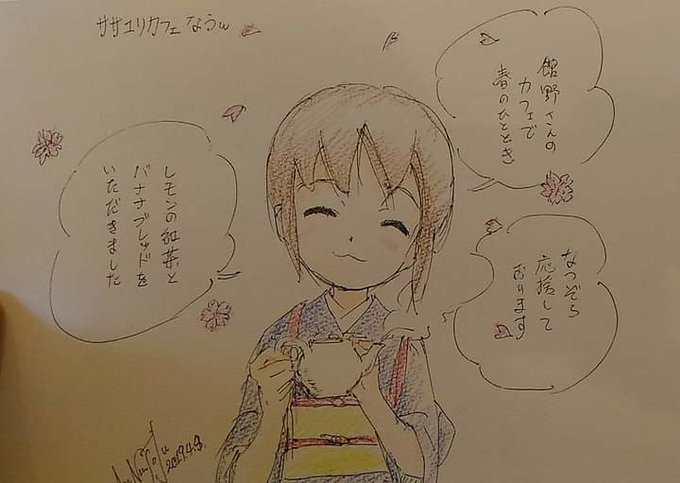 ササユリカフェなうω
館野さんの
カフェで
春のひととき
なつぞら
応援して
おります
レモンの紅茶と
バナナブレッドを
いただきました
2019.4.9.